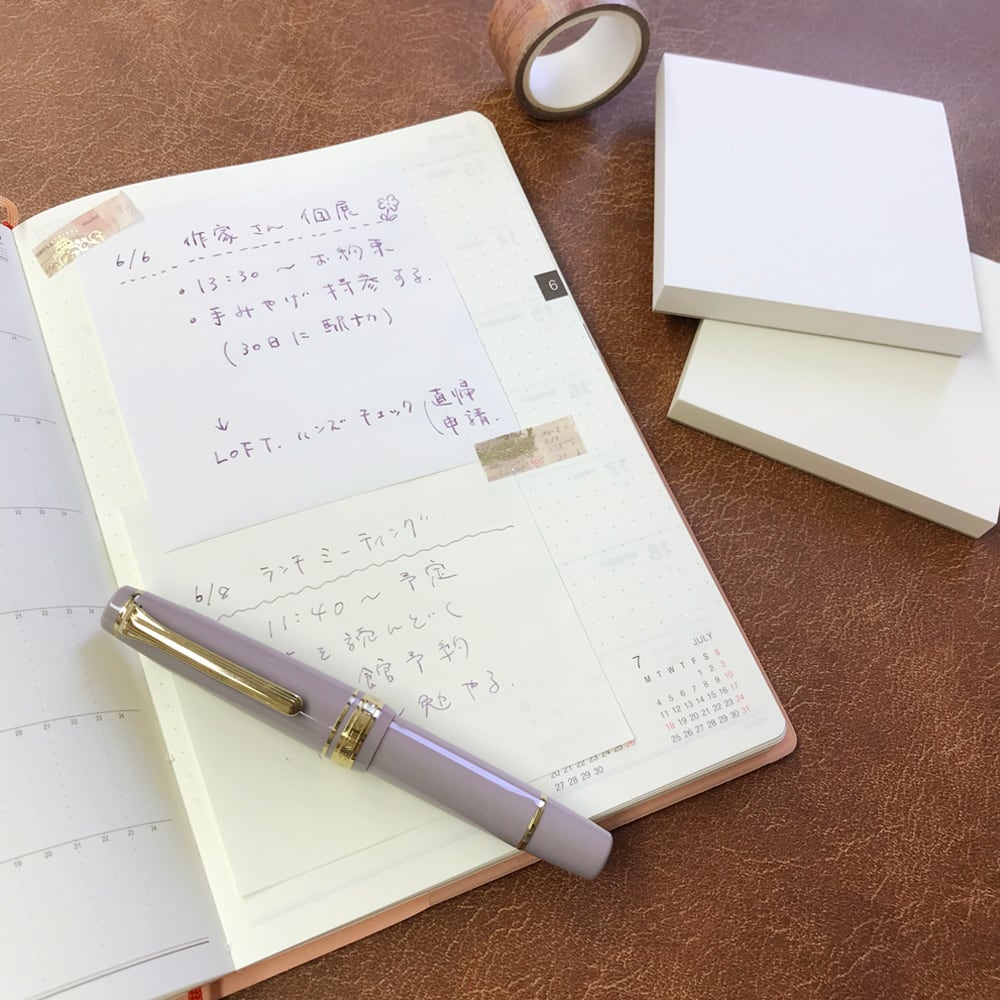 6/6 作家さん 個展
・13:30 〜 お約束
・手みやげ 持参する.
(30日に 駅ナカ)
↓
LOFT. ハンズ チェック (直帰
申請.
6/8 ランチ ミーティング
11:40 〜 予定
を読んどく
館予約
勉 やる.
6
7 JULY
M T W T F S S
1 2 3
4 5 6 7 8 9 10
11 12 13 14 15 16 17
18 19 20 21 22 23 24
25 26 27 28 29 30 31
20 21 22 23 24 25 26
27 28 29 30